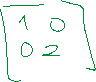 1 0
0 2